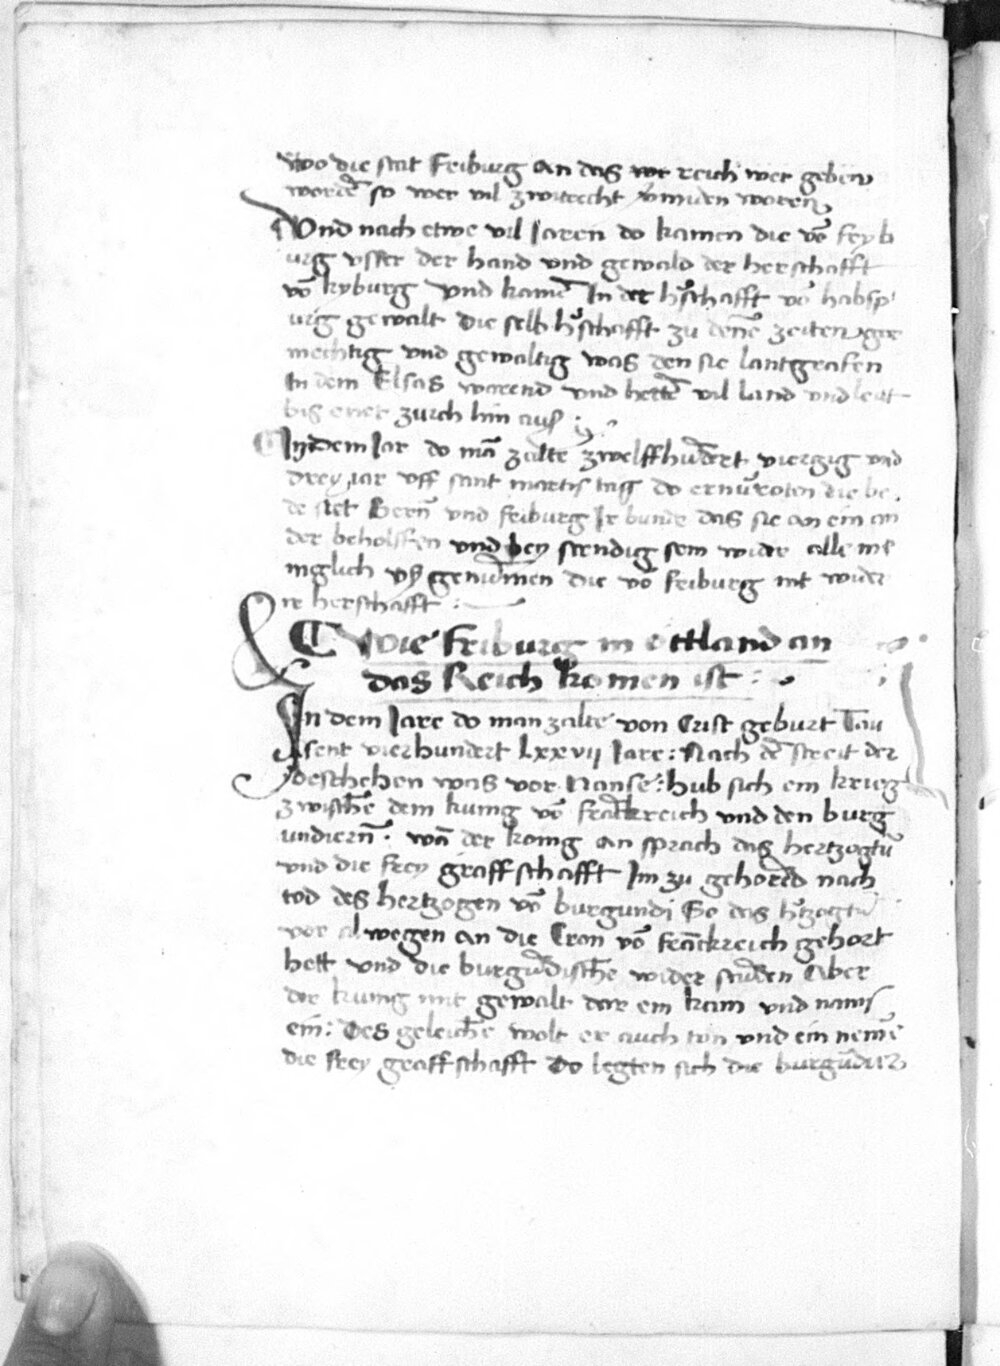 wo die stat Friburg an das rich wer geben
wordē so wer vil zwitrecht vermiden woren
Und nach etwe vil Jaren do kamen die vō feyb
urg vsser der hand vnd gewald der herschafft
vō kyburg vnd kamē In der hʼschafft vō habsp
urg gewalt die selb hʼschafft zu denē zeiten gar
mechtig vnd gewaltig was den sie lantgrafen
In dem Elsas warend vnd hettē vil land vnd leut
bis enet zurch hin aus
In Dem Jar do mā zalte zwelffhūdert vierzig vnd
drey iar vff sant martis tag do ernūroten die be
de stet Bern̄ vnd friburg Ir bunde das sie an ein an
der beholffen vnd bey stendig sein wider alle me
niglich vsgenumen die vō friburg nit wider
ir herschafft :
Wie friburg in ottland an
das Reich komen ist :
In dem Jare do man zalte von Crist geburt Tau
sent vierhundert Lxxvii Jare : Nach dē streit der
beschehen was vor Nanse : hub sich ein krieg
zwischē dem kunig vō franckreich vnd den burg
undiern̄ . wā der konig an sprach das hertzogtū
vnd die frey graffschafft Im zu gehorēd nach
tod des hertzogen vō burgundi So das hʼtzogtū
vor alwegen an die Cron vō frāckreich gehort
hett vnd die burgūdischē wider stūden Aber
der kunig mit gewalt dar ein kam vnd nams
ein : Des geleichē wolt er auch tun vnd ein nemē
die frey graffschafft Do legten sich die burgūdier